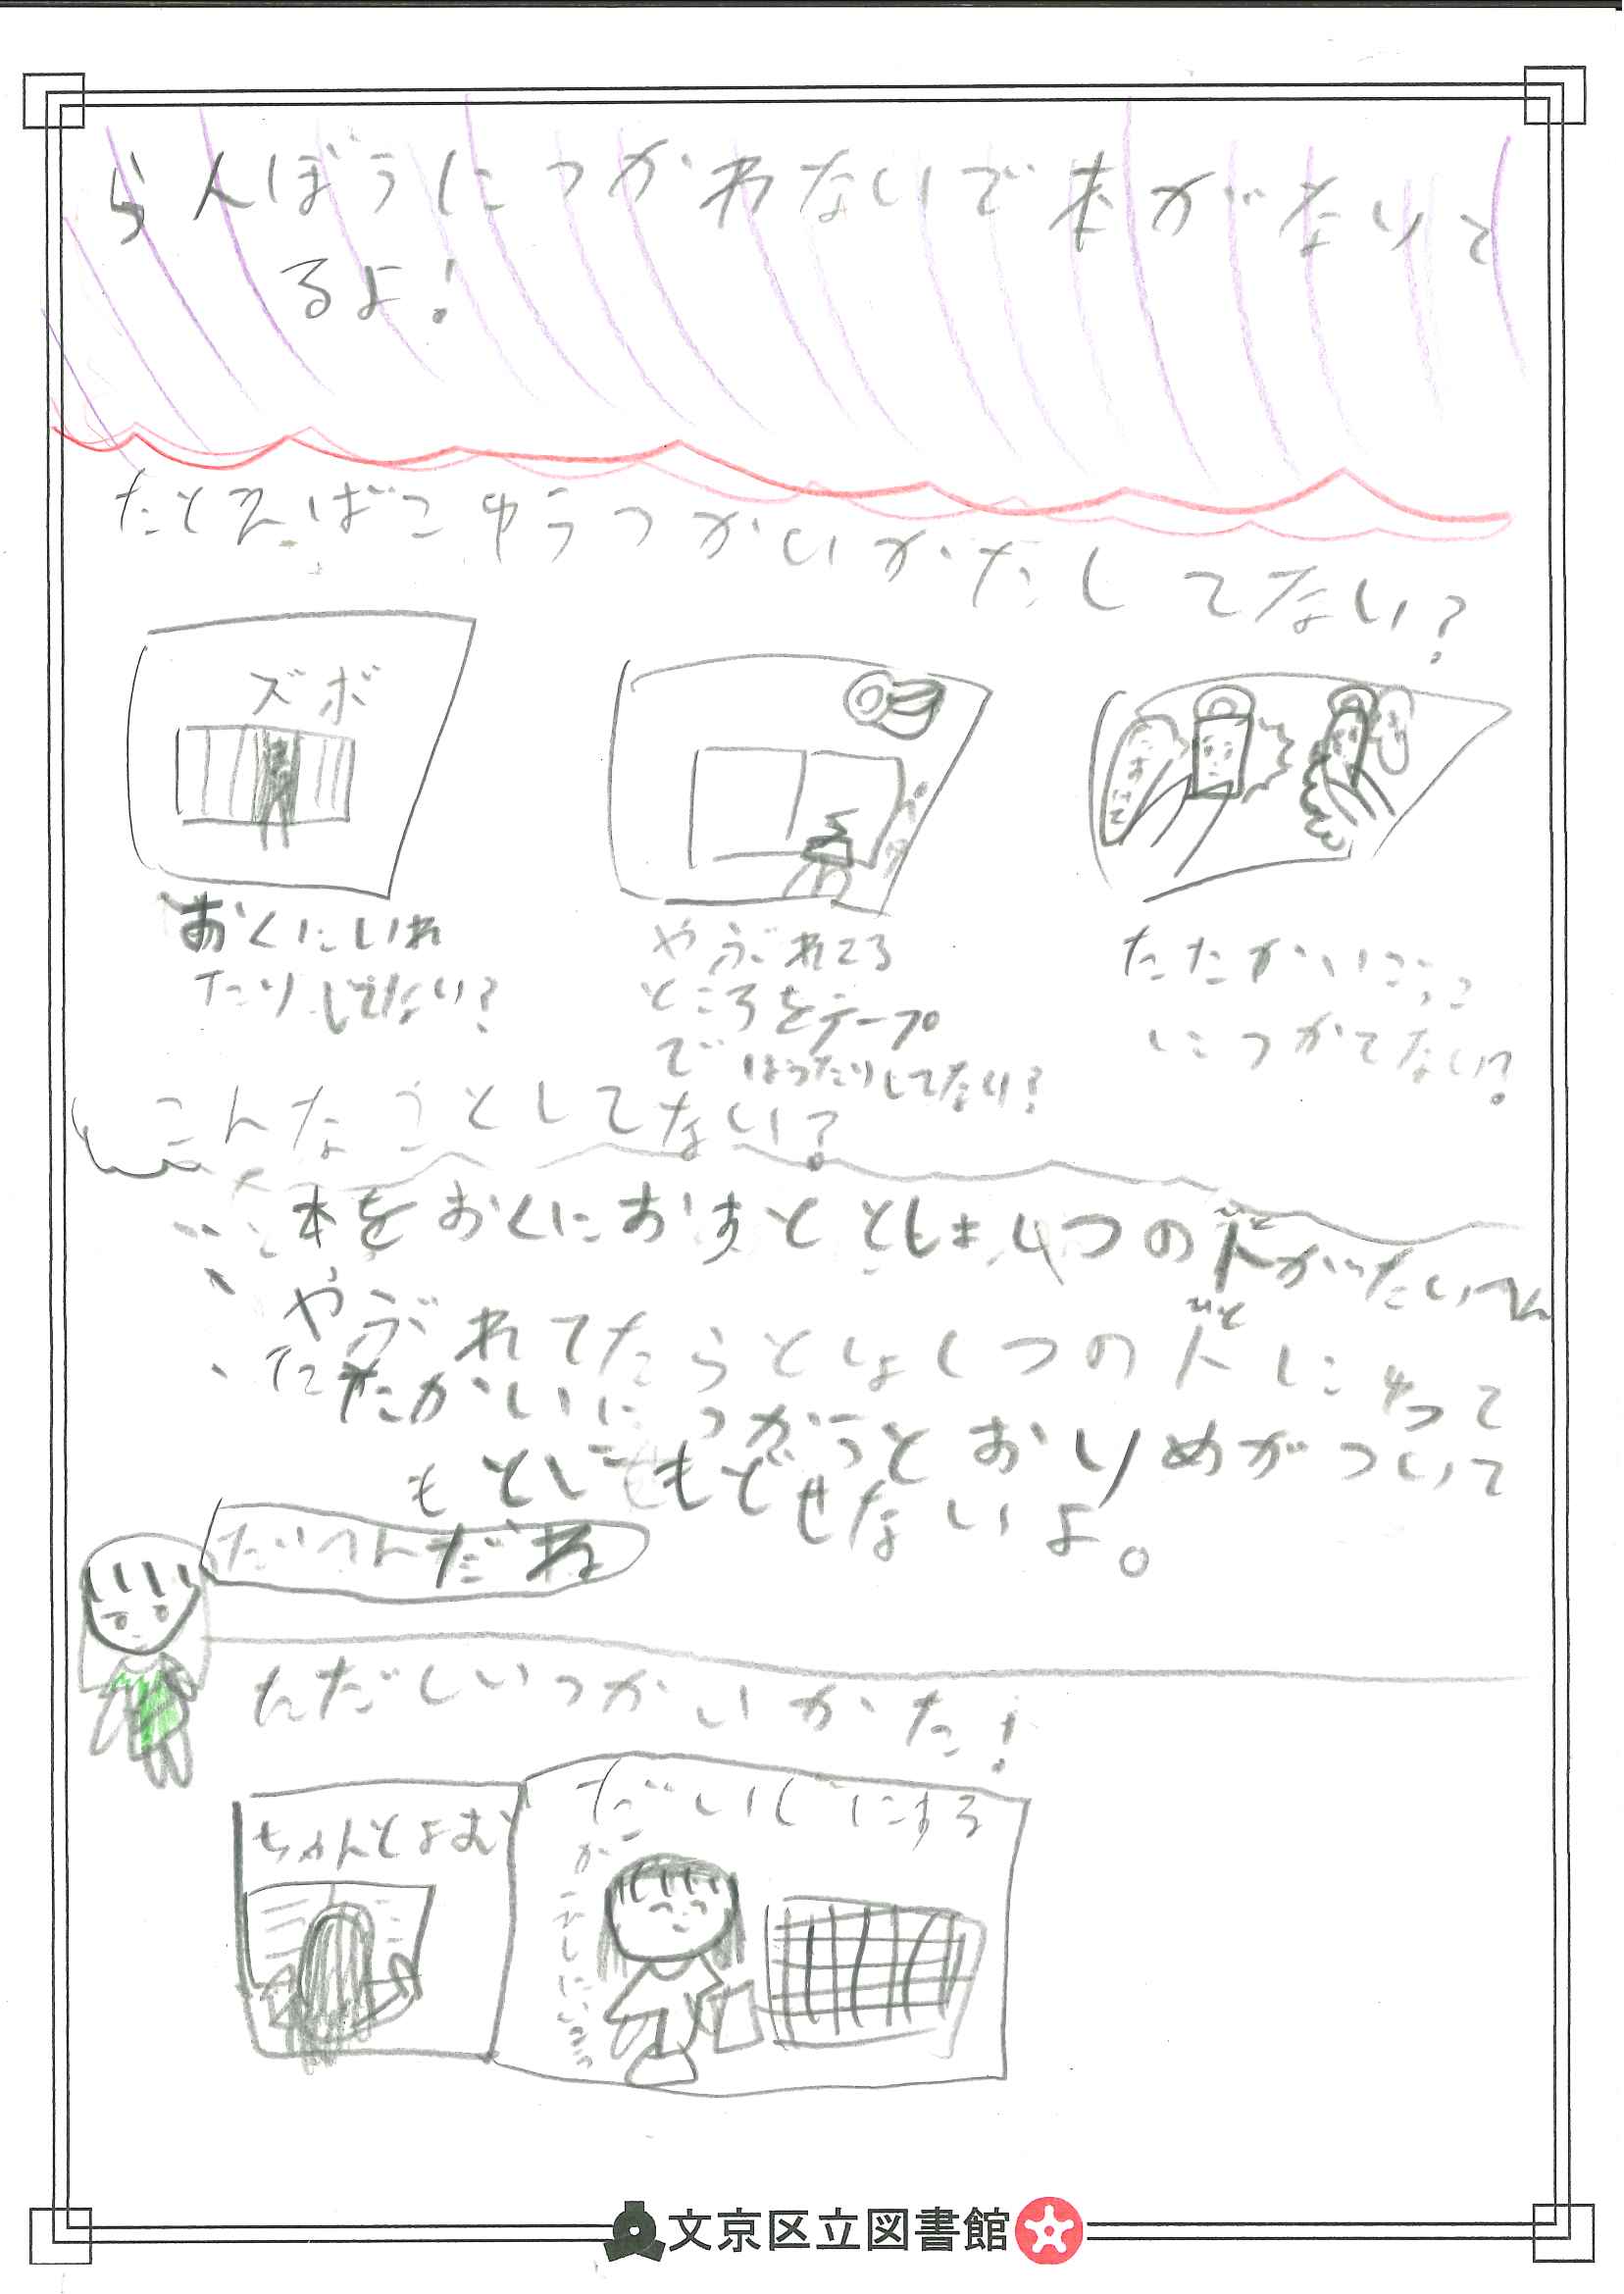 らんぼうにつかわないで本がないて
るよ!
たとえばこゆうつかいかたしてない?
ズボ
おくにいれ
たりしてない?
やぶれてる
ところをテープ
ではったりしてない?
たたかいごっこ
につかてない?
こんなことしてない?
本をおくにおすととしょしつの人がたいへん
やぶれてたらとしょしつの人にゆって
たたかいにつかうとおりめがついて
もとにもどせないよ。
たいへんだね
ただしいつかいかた!
ちゃんとよむ
だいじにする
文京区立図書館